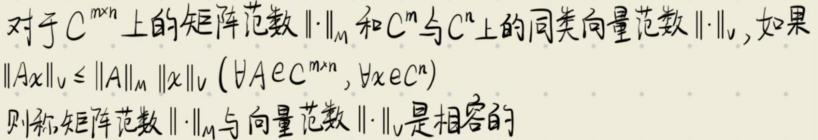 对于 C^{m×n} 上的矩阵范数 ‖·‖_M 和 C^m 与 C^n 上的同类向量范数 ‖·‖_V, 如果
‖Ax‖_V ≤ ‖A‖_M ‖x‖_V (∀A∈C^{m×n}, ∀x∈C^n)
则称矩阵范数 ‖·‖_M 与向量范数 ‖·‖_V 是相容的